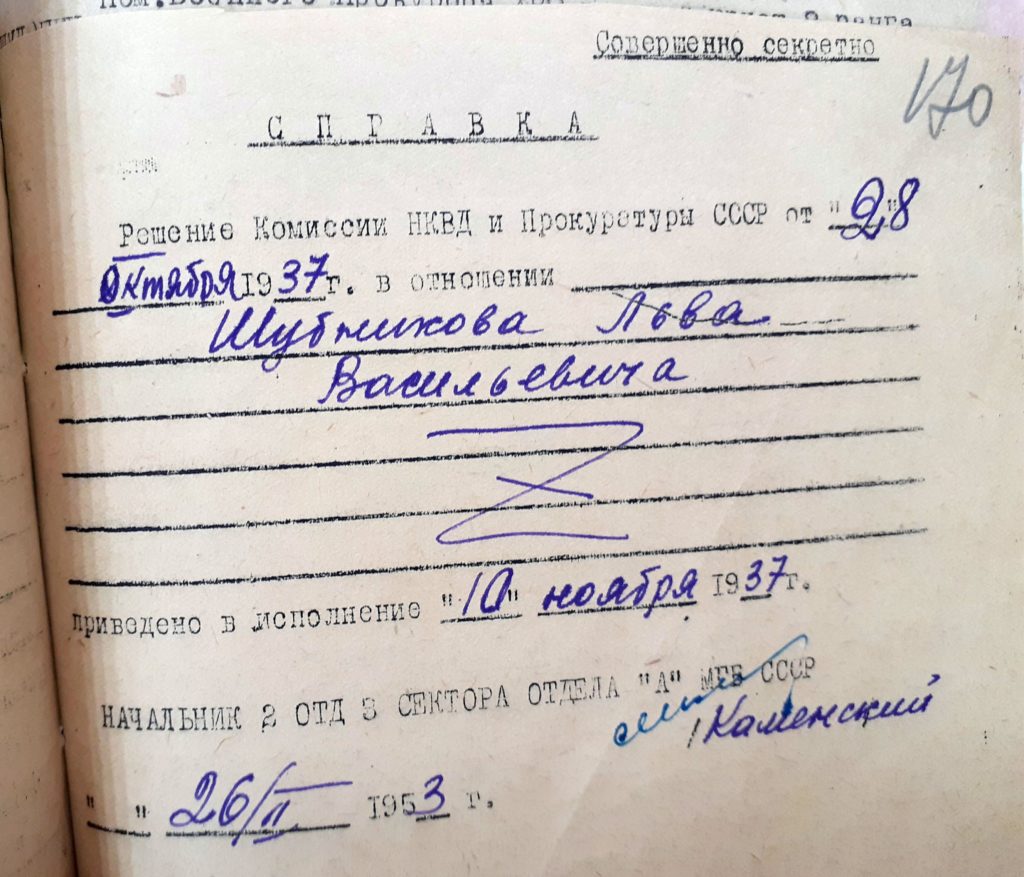 Пом. Военного Прокурора
2 ранга
Совершенно секретно
170
С П Р А В К А
Решение Комиссии НКВД и Прокуратуры СССР от "28"
октября 1937г. в отношении
Шубникова Льва
Васильевича
приведено в исполнение "10" ноября 1937г.
НАЧАЛЬНИК 2 ОТД 3 СЕКТОРА ОТДЕЛА "А" МГБ СССР
/Каменский
" " 26/II 1953 г.